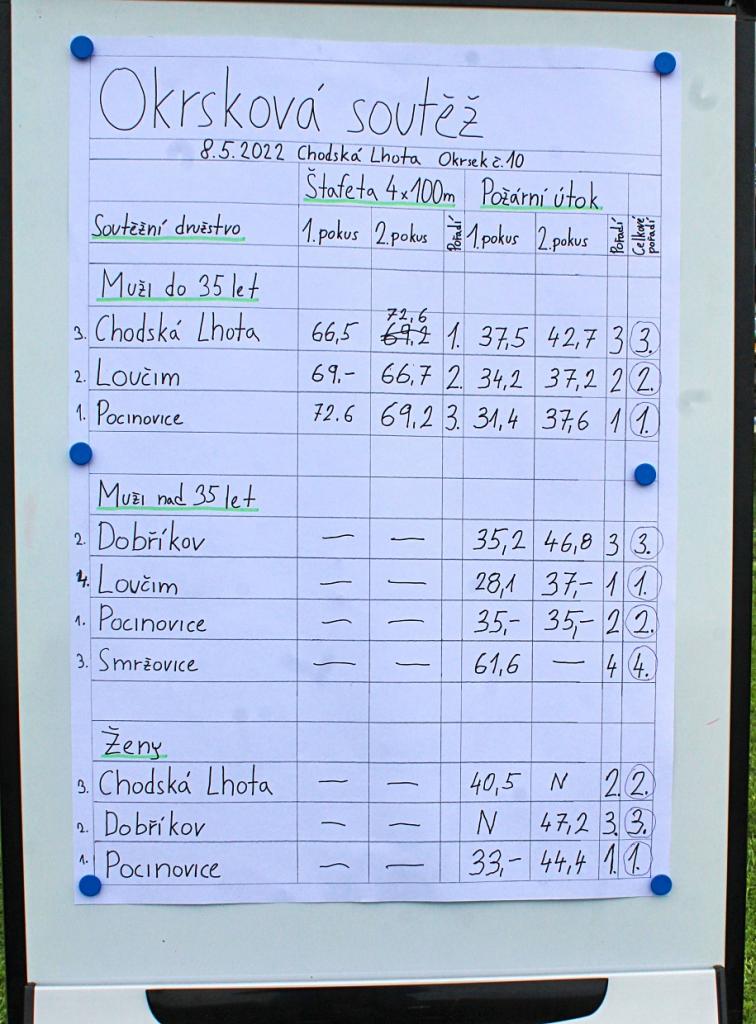 Okrsková soutěž
8.5.2022 Chodská Lhota Okrsek č.10
Štafeta 4x100m Požární útok
Soutěžní družstvo 1.pokus 2.pokus Pořadí 1.pokus 2.pokus Pořadí Celkové pořadí
Muži do 35 let
72,6
3. Chodská Lhota 66,5 69,2 1. 37,5 42,7 3 3.
2. Loučim 69.- 66,7 2. 34,2 37,2 2 2.
1. Pocinovice 72.6 69,2 3. 31,4 37,6 1 1.
Muži nad 35 let
2. Dobříkov — — 35,2 46,8 3 3.
4. Loučim — — 28,1 37,- 1 1.
1. Pocinovice — — 35,- 35,- 2 2.
3. Smržovice — — 61,6 — 4 4.
Ženy
3. Chodská Lhota — — 40,5 N 2. 2.
2. Dobříkov — — N 47,2 3. 3.
1. Pocinovice — — 33,- 44,4 1. 1.